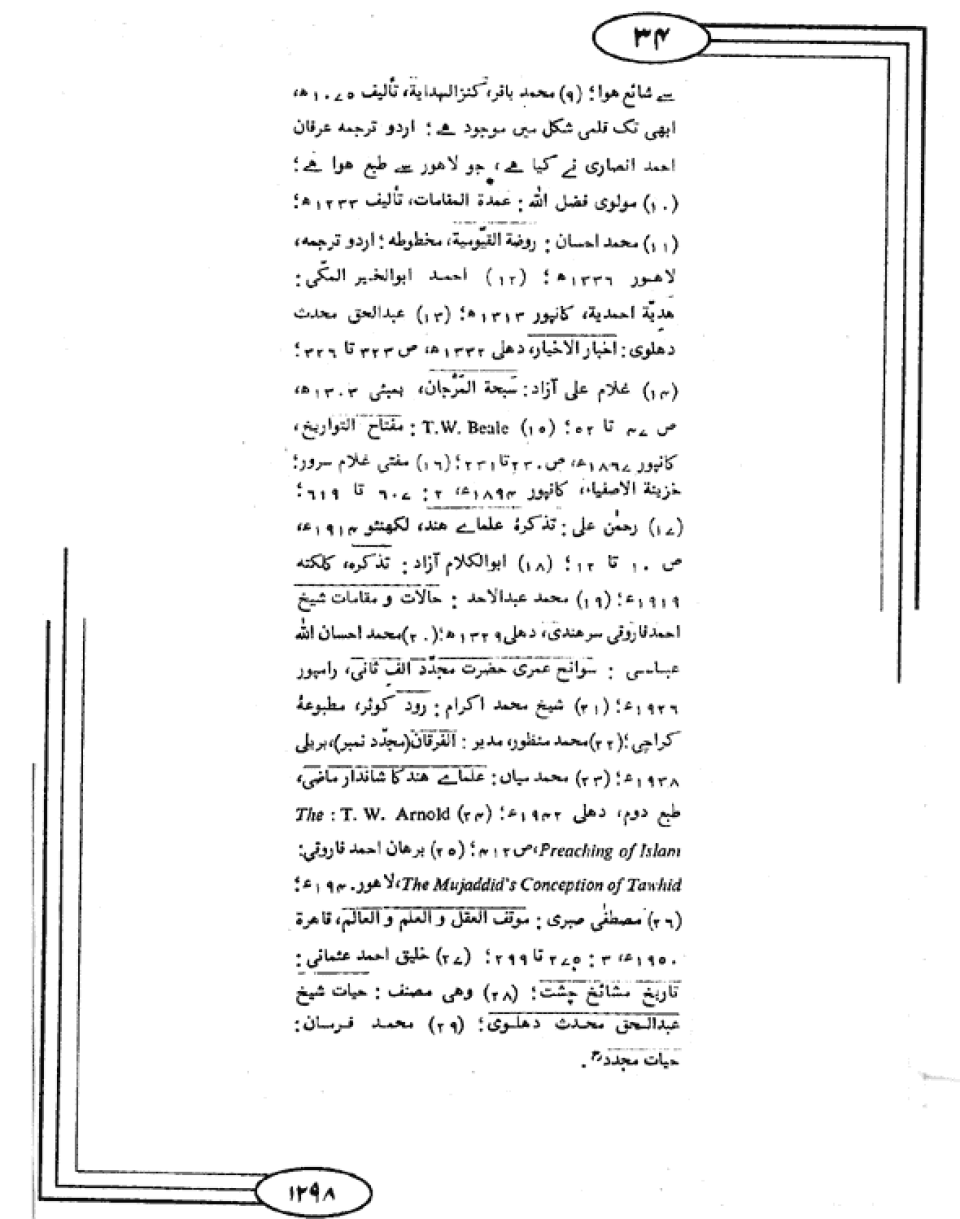 ۳۴
سے شائع ہوا؛ (۹) محمد باقر، کنزالہدایة، تألیف ۱۰۷۵ھ،
ابھی تک قلمی شکل میں موجود ہے؛ اردو ترجمہ عرفان
احمد انصاری نے کیا ہے، جو لاہور سے طبع ہوا ہے؛
(۱۰) مولوی فضل اللہ: عمدة المقامات، تألیف ۱۲۳۳ھ؛
(۱۱) محمد احسان: روضة القیّومیة، مخطوطہ؛ اردو ترجمہ،
لاہور ۱۳۳۶ھ؛ (۱۲) احمد ابوالخیر المکّی:
ھدیّة احمدیة، کانپور ۱۳۱۳ھ؛ (۱۳) عبدالحق محدث
دھلوی: اخبار الاخیار، دھلی ۱۳۳۲ھ، ص ۳۲۳ تا ۳۲۶؛
(۱۴) غلام علی آزاد: سبحة المرجان، بمبئی ۱۳۰۳ھ،
ص ۴۷ تا ۵۲؛ (۱۵) T.W. Beale: مفتاح التواریخ،
کانپور ۱۸۶۷ء، ص ۲۳۰ تا ۲۳۱؛ (۱۶) مفتی غلام سرور:
خزینة الاصفیاء، کانپور ۱۸۹۴ء، ۲: ۶۰۷ تا ۶۱۹؛
(۱۷) رحمٰن علی: تذکرۂ علماے ھند، لکھنئو ۱۹۱۴ء،
ص ۱۰ تا ۱۲؛ (۱۸) ابوالکلام آزاد: تذکرہ، کلکتہ
۱۹۱۹ء؛ (۱۹) محمد عبدالاحد: حالات و مقامات شیخ
احمد فاروقی سرھندی، دھلی ۱۳۲۹ھ؛ (۲۰) محمد احسان اللہ
عباسی: سوانح عمری حضرت مجدّد الف ثانی، رامپور
۱۹۲۶ء؛ (۲۱) شیخ محمد اکرام: رود کوثر، مطبوعۂ
کراچی؛ (۲۲) محمد منظور، مدیر: الفرقان (مجدّد نمبر)، بریلی
۱۹۳۸ء؛ (۲۳) محمد میاں: علماے ھند کا شاندار ماضی،
طبع دوم، دھلی ۱۹۴۲ء؛ (۲۴) T. W. Arnold: The
Preaching of Islam، ص ۴۱۲؛ (۲۵) برھان احمد فاروقی:
The Mujaddid's Conception of Tawhid، لاھور ۱۹۴۰ء؛
(۲۶) مصطفٰی صبری: موقف العقل و العلم و العالم، قاھرة
۱۹۵۰ء، ۳: ۲۷۵ تا ۲۹۹؛ (۲۷) خلیق احمد عثمانی:
تاریخ مشائخ چشت؛ (۲۸) وھی مصنف: حیات شیخ
عبدالحق محدث دھلوی؛ (۲۹) محمد فرمان:
حیات مجددؒ.
۱۲۹۸